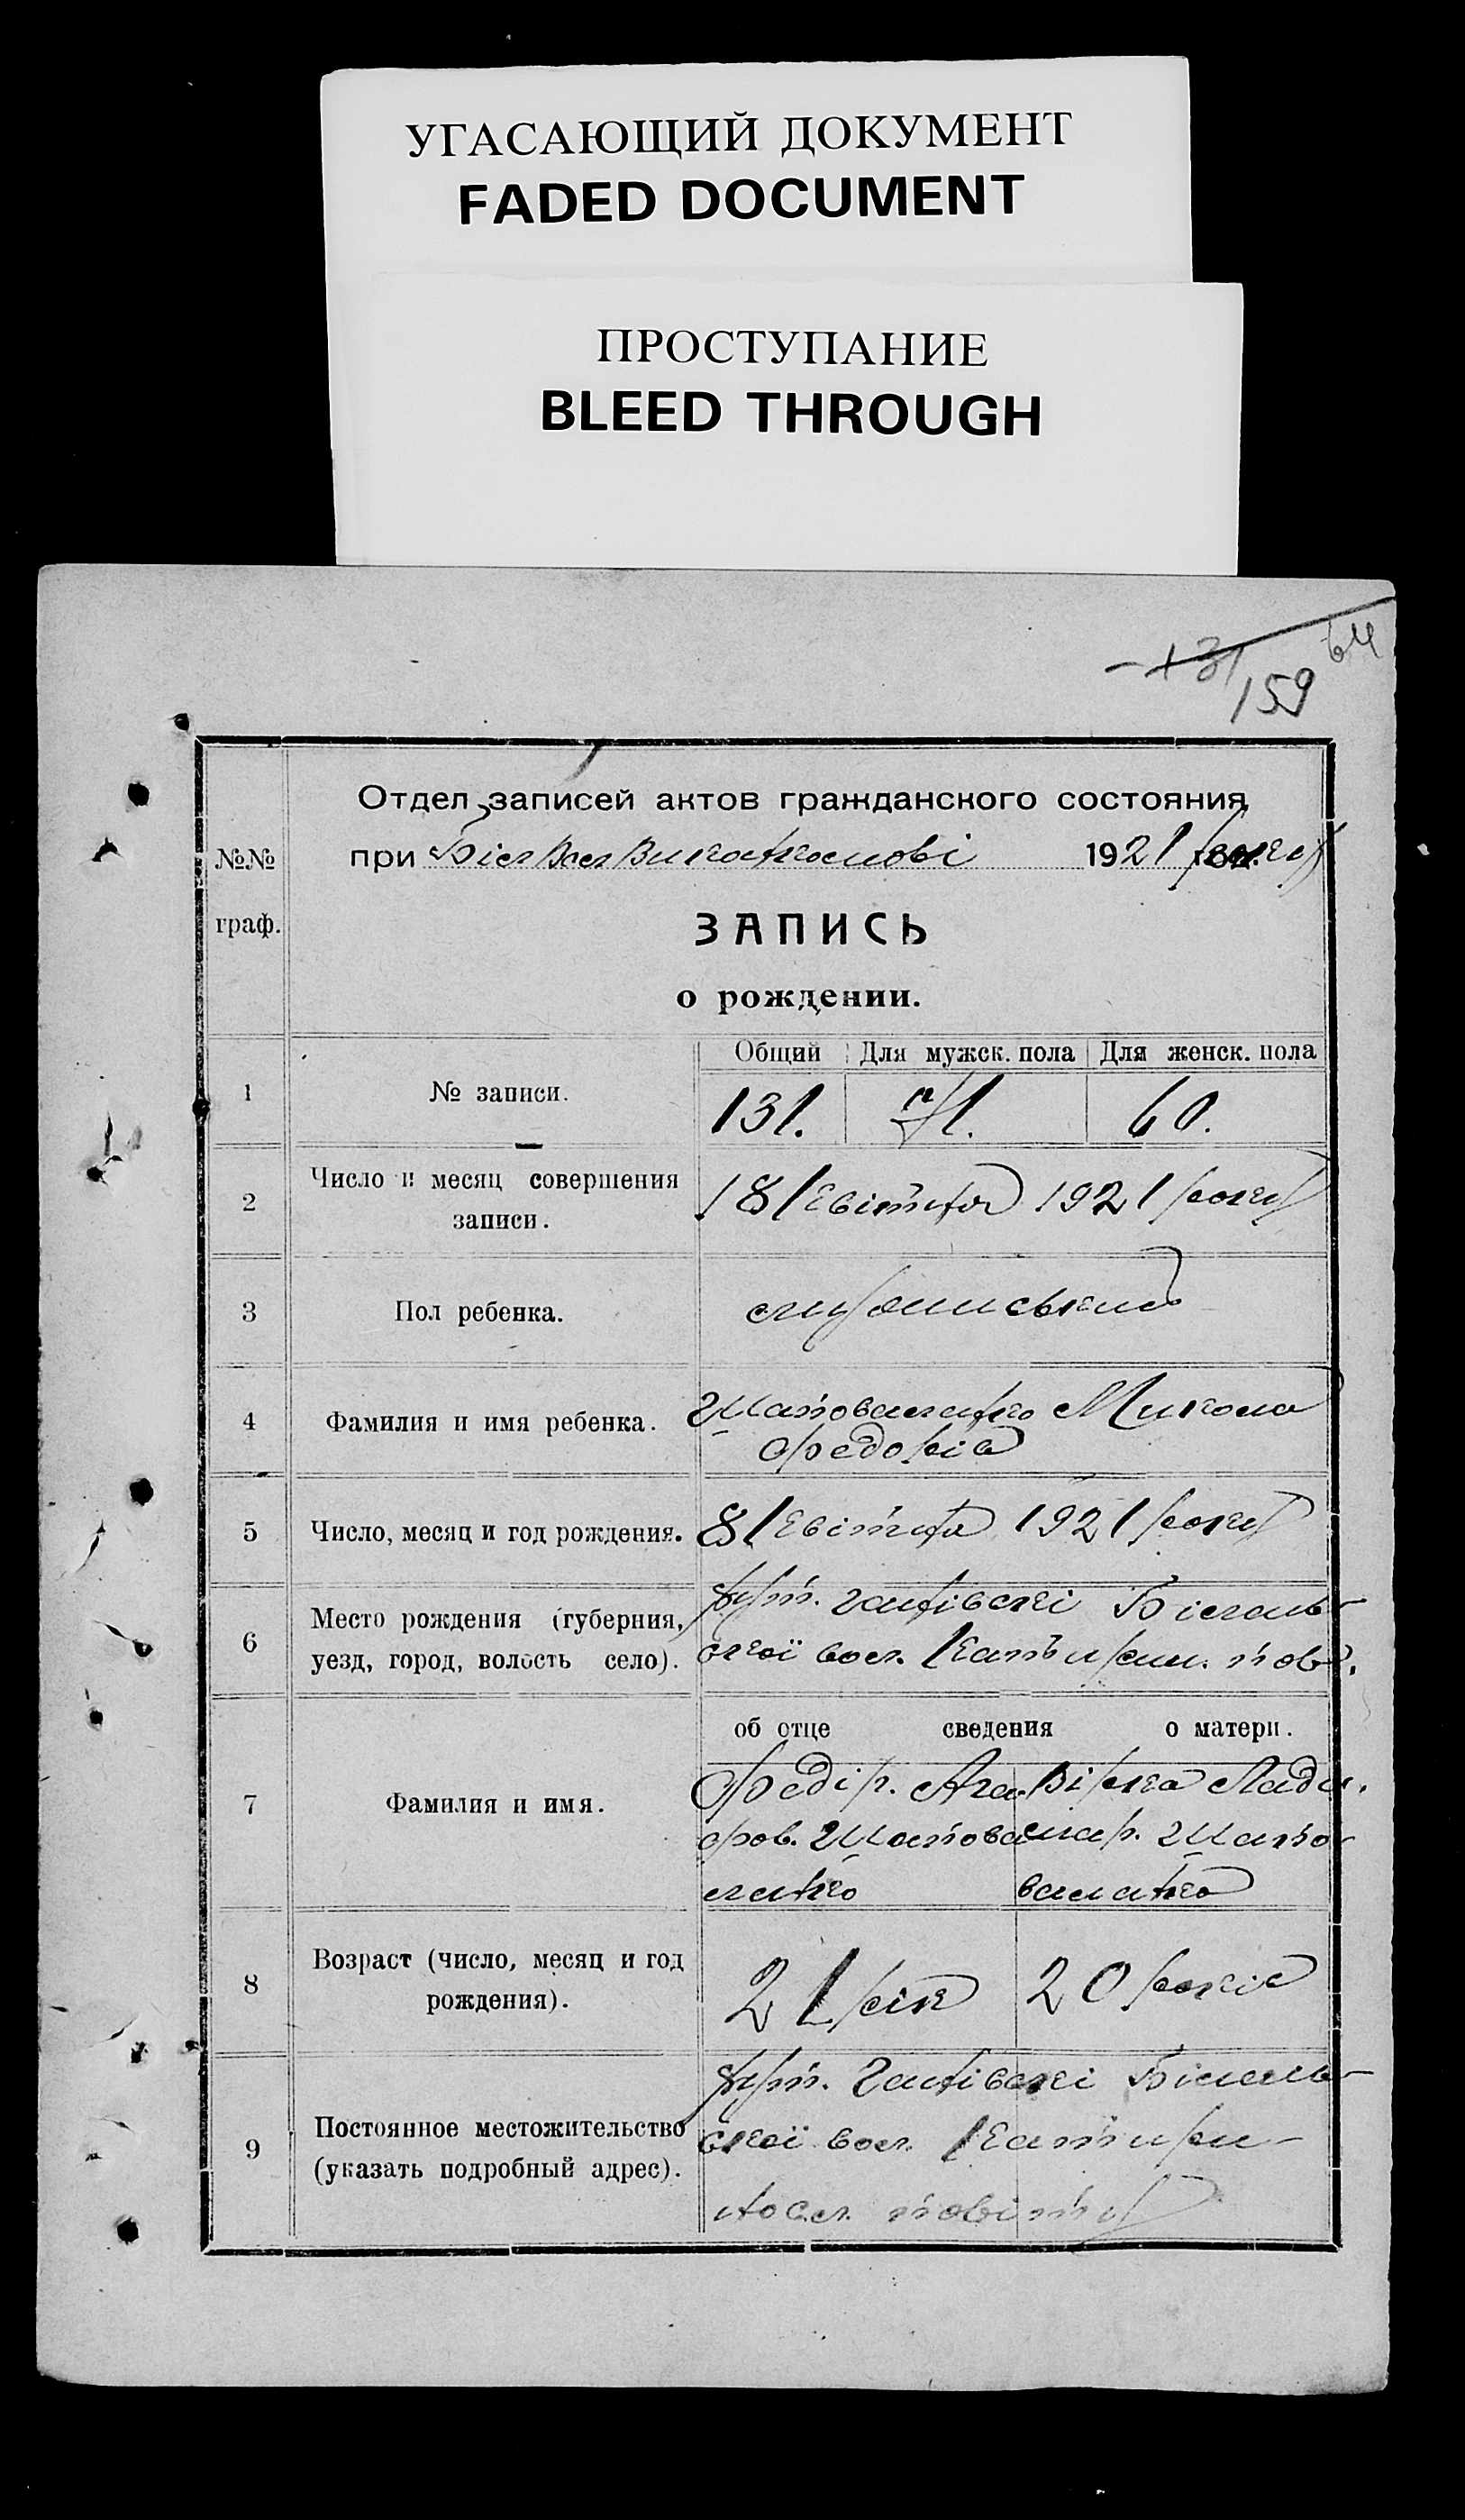 УГАСАЮЩИЙ ДОКУМЕНТ
FADED DOCUMENT
ПРОСТУПАНИЕ
BLEED THROUGH
64
131
159
Отдел записей актов гражданского состояния
№№ при 1921 року
граф.
ЗАПИСЬ
о рождении.
Общий Для мужск. пола Для женск. пола
1 № записи. 131. 71. 60.
2 Число и месяц совершения
записи.
18 Квітня 1921 року
3 Пол ребенка.
4 Фамилия и имя ребенка.
Шаповаленко Микола
Федорів
5 Число, месяц и год рождения. 8 Квітня 1921 року
6 Место рождения (губерния,
уезд, город, волость село).
хут. Ганівсці Білень-
скої вол. пов.
об отце сведения о матери.
7 Фамилия и имя.
Федір Вірка
Шапова
ленко
Шапо-
валенко
8 Возраст (число, месяц и год
рождения).
21 рік 20 років
9 Постоянное местожительство
(указать подробный адрес).
хут. Ганівсці Білень-
скої вол.
повіту